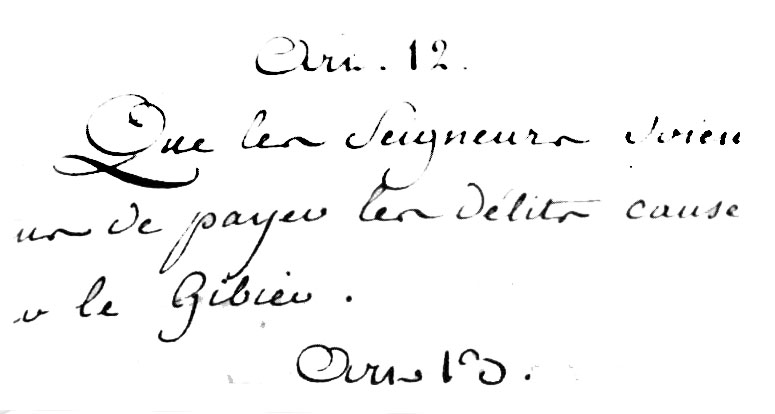 Art. 12.
Que les Seigneurs soien
us de payer les délits cause
r le Gibier.
Art 13.